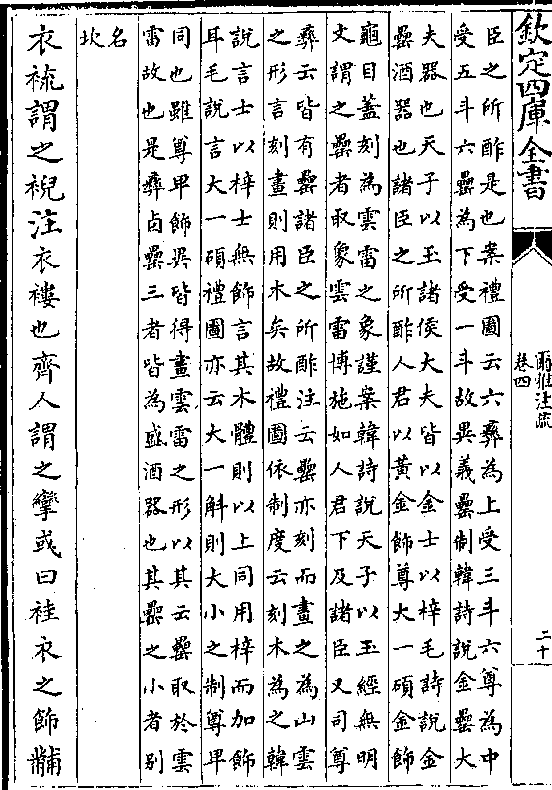 欽定四庫全書
爾雅注疏
卷四
二十
臣之所酢是也案禮圖云六彝為上受三斗六尊為中
受五斗六罍為下受一斗故異義罍制韓詩說金罍大
夫器也天子以玉諸侯大夫皆以金士以梓毛詩說金
罍酒器也諸臣之所酢人君以黄金飾尊大一碩金飾
龜目蓋刻為雲雷之象謹案韓詩說天子以玉經無明
文謂之罍者取象雲雷博施如人君下及諸臣又司尊
彞云皆有罍諸臣之所酢注云罍亦刻而畫之為山雲
之形言刻畫則用木矣故禮圖依制度云刻木為之韓
說言士以梓士無飾言其木體則以上同用梓而加飾
耳毛說言大一碩禮圖亦云大一斛則大小之制尊卑
同也雖尊卑飾異皆得畫雲雷之形以其云罍取於雲
雷故也是彞卣罍三者皆為盛酒器也其罍之小者别
名
坎
衣裗謂之䘽注衣褸也齊人謂之攣或曰袿衣之飾黼